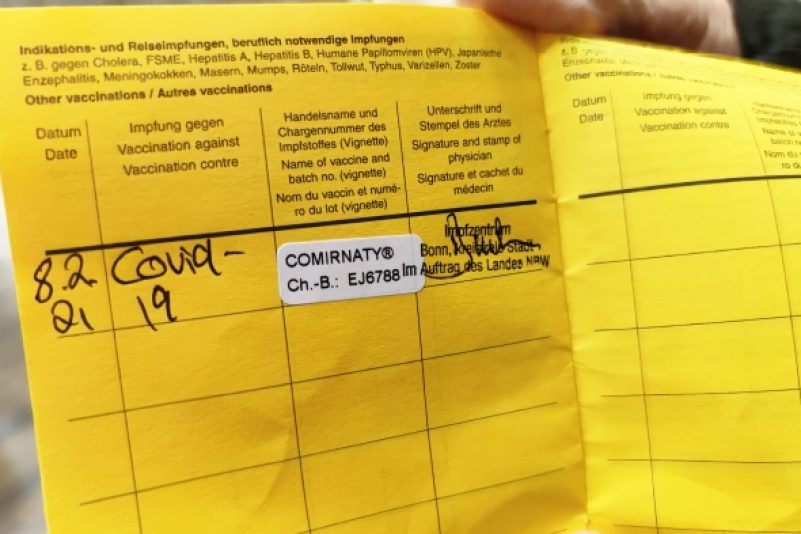 Indikations- und Reiseimpfungen, beruflich notwendige Impfungen
z. B. gegen Cholera, FSME, Hepatitis A, Hepatitis B, Humane Papillomviren (HPV), Japanische
Enzephalitis, Meningokokken, Masern, Mumps, Röteln, Tollwut, Typhus, Varizellen, Zoster
Other vaccinations / Autres vaccinations
Datum
Date
Impfung gegen
Vaccination against
Vaccination contre
Handelsname und
Chargennummer des
Impfstoffes (Vignette)
Name of vaccine and
batch no. (vignette)
Nom du vaccin et numé-
ro du lot (vignette)
Unterschrift und
Stempel des Arztes
Signature and stamp of
physician
Signature et cachet du
médecin
8.2
21
Covid-
19
COMIRNATY®
Ch.-B.: EJ6788
Impfzentrum
Bonn, Kreisfreie Stadt
Im Auftrag des Landes NRW
z. B. gegen
Other vaccinations / Autres
Datum
Date
Impfung gegen
Vaccination against
Vaccination contre